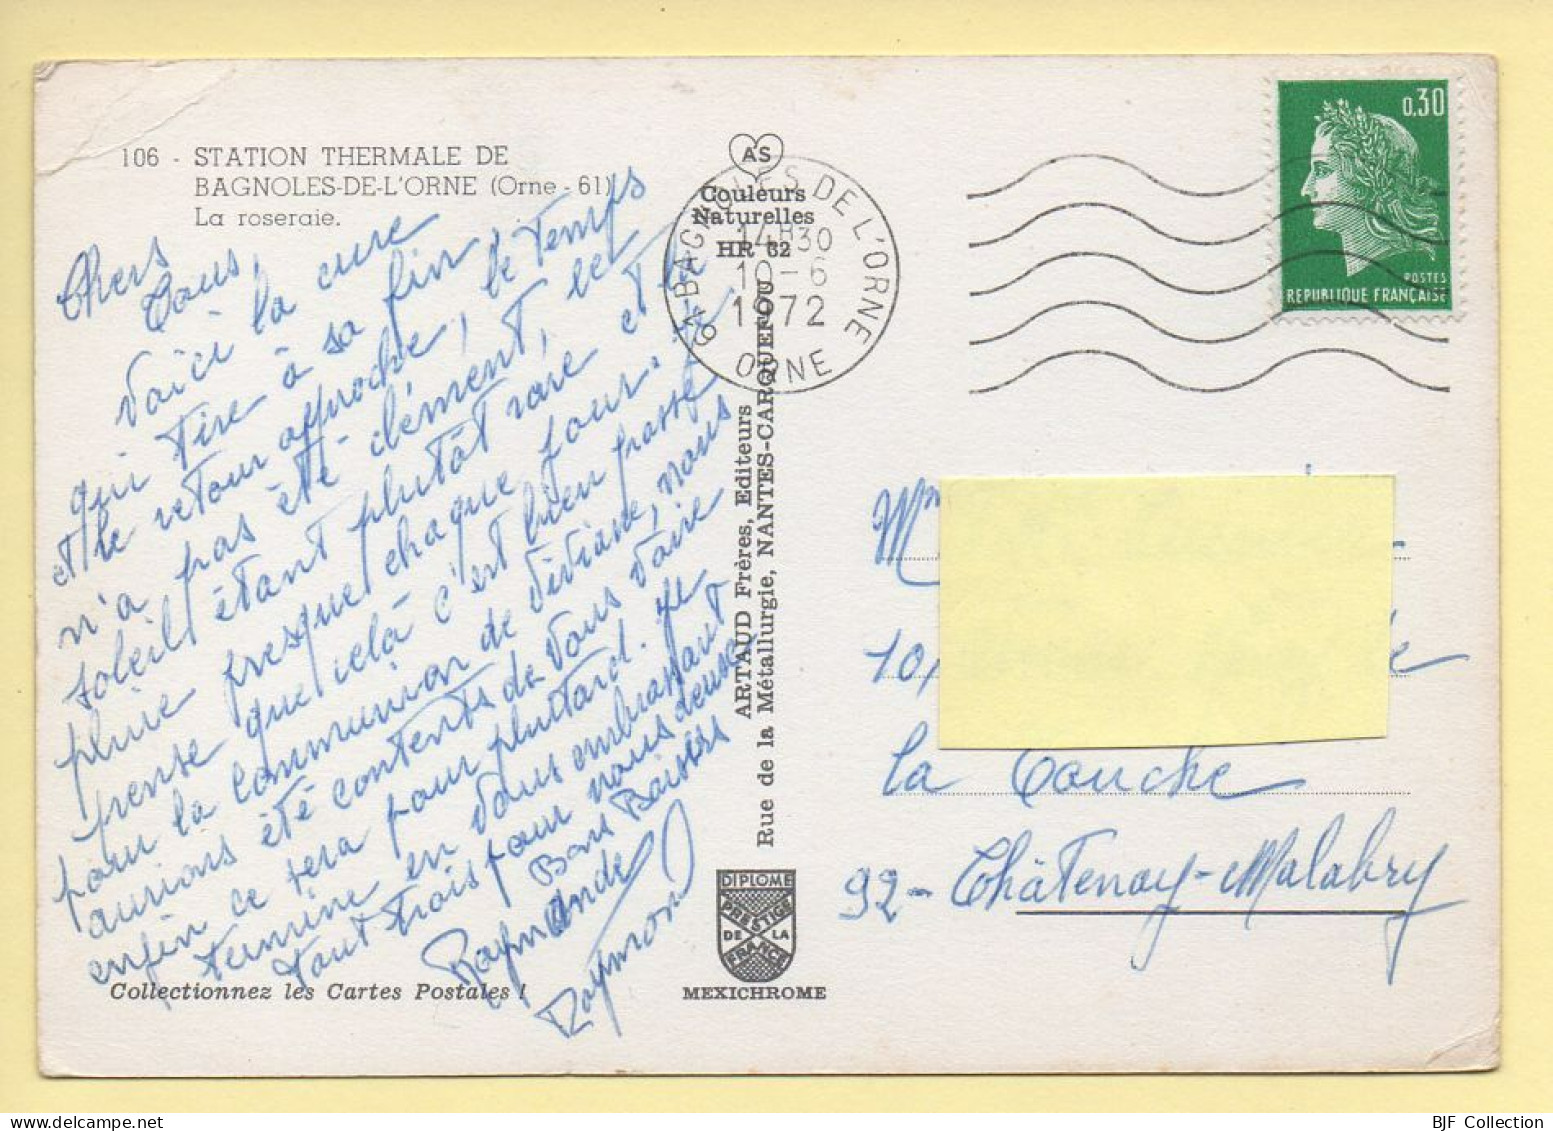 106 - STATION THERMALE DE
BAGNOLES-DE-L'ORNE (Orne - 61)
La roseraie.
Chers
Tous,
Voici la cure
qui tire à sa fin
et le retour approche, le temps
n'a pas été clément, le
soleil étant plutôt rare et la
pluie presque chaque jour. Je
pense que cela c'est bien passé
pour la communion de Viviane, nous
aurions été contents de vous voire
enfin ce sera pour plutard. Je
termine en vous embrassant
tout trois pour nous deux
Bons Baisers
Raymonde
Raymond
Collectionnez les Cartes Postales !
AS
Couleurs
Naturelles
HR 62
ARTAUD Frères, Editeurs
Rue de la Métallurgie, NANTES-CARQUEFOU
DIPLOME
PRESTIGE
DE LA
FRANCE
MEXICHROME
61 BAGNOLES DE L'ORNE
14H30
10-6
1972
ORNE
0,30
POSTES
REPUBLIQUE FRANÇAISE
Mme
101
La Couche
92 - Châtenay-Malabry
BJF Collection